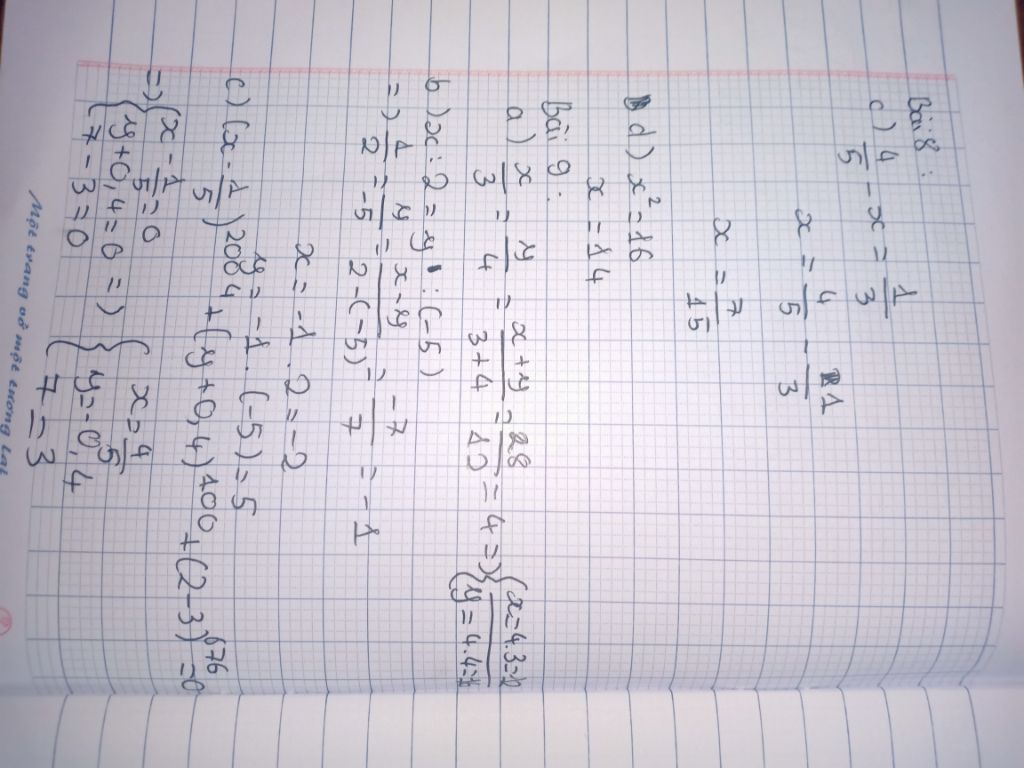 Bài 8:
c) 4/5 - x = 1/3
x = 4/5 - 1/3
x = 7/15
d) x² = 16
x = ±4
Bài 9:
a) x/3 = y/4 = x+y/3+4 = 28/
= 4 => { x = 4.3 =
{ y = 4.4 =
b) x : 2 = y : (-5)
=> x/2 = y/-5 = x-y/2-(-5) = -7/7 = -1
x = -1 . 2 = -2
y = -1 . (-5) = 5
c) (x - 1/5)
+ (y + 0,4)¹⁰⁰ + (2-3)⁶⁷⁶ = 0
=> { x - 1/5 = 0
{ y + 0,4 = 0 =>
{ 7 - 3 = 0
{ x = 4/5
{ y = -0,4
{ 7 = 3
Một trang vở một tương lai